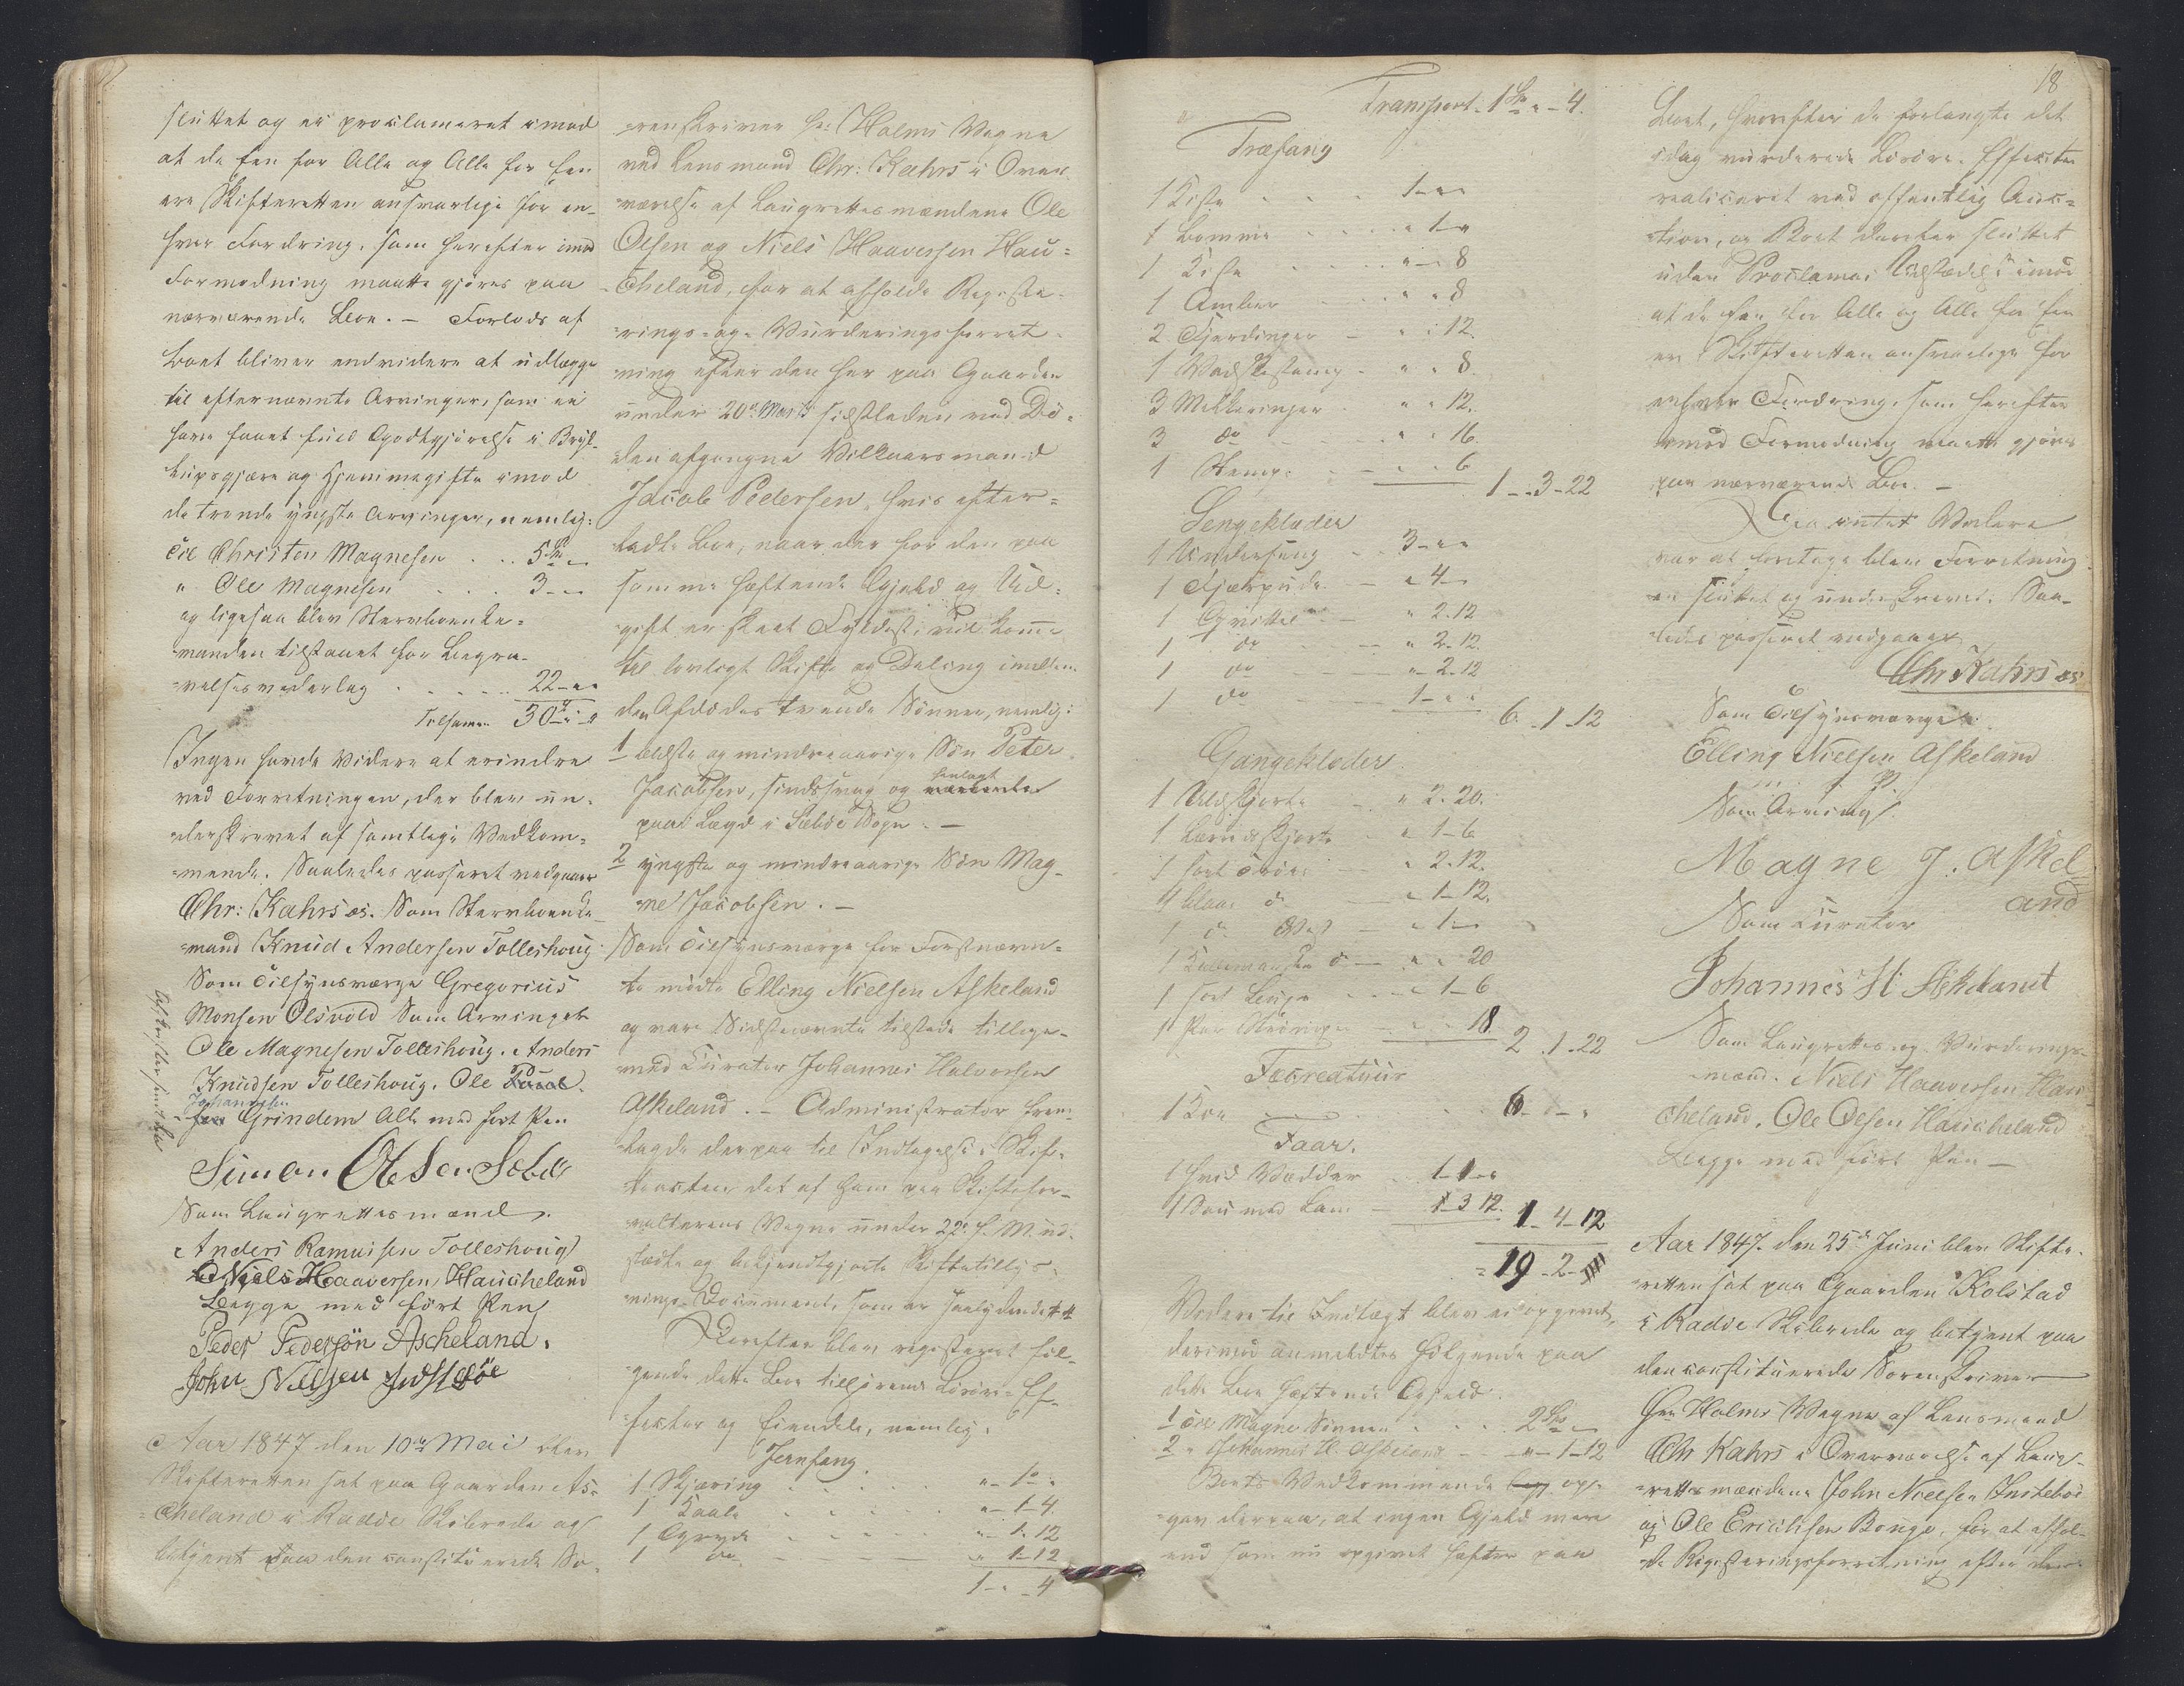 sluttet og ei proclameret imod
at de Een for Alle og Alle for Een
ere Skifteretten ansvarlige for en-
hver Fordring, som herefter imod
Formodning maatte gjöres paa
nærværende Boe. — Forlods af
Boet bliver endvidere at udlægge
til efternævnte Arvinger, som ei
have faaet fuld Godtgjörelse i Bryl-
lupsgjære og Hjemmegifte imod
de tvende yngste Arvinger, nemlig:
til Christen Magnesen . . 5 Sp -
" Ole Magnesen . . . 3 - -
og ligesaa blev Stervboenke-
manden tilstaaet for Begra-
velsesvederlag . . . . . 22 - "
Tilsamen 30 " "
Ingen havde videre at erindre
ved Forretningen, der blev un-
derskrevet af samtlige Vedkom-
mende. Saaledes passeret vedgaaer
Chr: Kahrs cs. Som Stervboenke-
mand Knud Andersen Tolleshoug
Som Tilsynsværge Gregorius
Monsen Olsvold Som Arvinger
Ole Magnesen Tolleshoug. Anders
Knudsen Tolleshoug. Ole
Johannesen
Grindem Alle med fört Pen
Simon Olsen Seböe
Som Laugrettesmænd.
Anders Ramussen Tolleshoug
Niels Haaversen Haucheland
Begge med fört Pen
Peder Pedersön Ascheland.
John Nielsen Indsteböe
Aar 1847 den 10de Mai blev
Skifteretten sat paa Gaarden As-
cheland i Radöe Skibrede og
betjent paa den constituerede So-
renskriver Hr: Holms Vegne
ved Lensmand Chr: Kahrs i Over-
værelse af Laugrettesmændene Ole
Olsen og Niels Haaversen Hau-
cheland, for at afholde Registe-
rings- og Vurderingsforret-
ning efter den her paa Gaarden
under 20de Marts sidstleden ved Dö-
den afgangne Vilkaarsmand
Jacob Pedersen, hvis efter-
ladte Boe, naar der for den paa
samme hæftende Gjeld og Ud-
gift er skeet Fyldest, vil komme
til lovligt Skifte og Deling imellem
den Afdödes tvende Sönner, nemlig:
1 ældste og mindreaarige Sön Peter
Jacobsen, sindssvag og henlagt
paa Lægd i Sæböe Sogn. —
2 yngste og mindreaarige Sön Mag-
ne Jacobsen. —
Som Tilsynsværge for Förstnævn-
te mödte Elling Nielsen Askeland
og vare Sidstnævnte tilstede tillige-
med Curator Johannes Halvorsen
Askeland. — Administrator frem-
lagde derpaa til Indtagelse i Skif-
teacten det af ham paa Skiftefor-
valterens Vegne under 22de f. M. ud-
stædte og bekjendtgjorte Skiftetillys-
nings-Document, som er saalydende
Derefter blev registeret föl-
gende dette Boe tilhörende Lösöre-Ef-
fecter og Eiendele, nemlig.
Jernfang
1 Skjæring . . . . . " - 1 - "
1 . . . . " - 1 - 4
1 Gryde . . . . " - 1 - 12
1 do . . . . " - 1 - 12
1 - " - 4
18
Transport. 1 Sp " - 4.
Træfang
1 Kiste . . . . 1 - " "
1 Lomme . . . . " 1 - "
1 Kiste . . . . " - " 8
1 Ambar . . . . " " 8
2 Fjerdinger - " " 12.
1 Vadskestamp - " " 8.
3 Melkeringer " " 12.
3 do . . . . " " 16.
1 Stamp . . - " " 6
1 - 3 - 22
Sengeklæder
1 Underseng . . 3 - " "
1 - " 4 -
1 - " 2.12
1 do - " 2.12.
1 do - " 2.12
1 do - 1 - " "
6. 1 - 12
Gangeklæder
1 Uldskjorte - " 2. 20.
1 Lærredsskjorte - " 1 - 6
1 sort Tröie - " 2. 12.
1 blaae do - " 1 - 12.
1 do Vest - " 1 -
1 do - " " 20
1 sort Buxe . . - " 1 - 6
1 Par - " " 18
2 . 1 - 22
Fæcreatuur
1 Koe . . . . 6 - " - "
Faar.
1 hvid Vædder . . 1 - 1 - "
1 Sau med Lam - 3 12.
1 - 4 - 12
= 19 - 2 -
Videre til Indtægt blev ei opgivet,
derimod anmeldtes fölgende paa
dette Boe hæftende Gjeld.
1 til Magne Sönnen . . . 2 Sp -
2 " Johannes H. Askeland - - " - 1 - 12
Boets Vedkommende op-
gav derpaa, at ingen Gjeld mere
end som nu opgivet hæfter paa
Boet, hvorefter de forlangte det
idag vurderede Lösöre-Effecter
realiseret ved offentlig Auc-
tion, og Boet derefter sluttet
uden Proclamas Udstædelse imod
at de Een for Alle og Alle for Een
ere Skifteretten ansvarlige for
enhver Fordring, som herefter
imod Formodning maatte gjöres
paa nærværende Boe. —
Da intet Videre
var at foretage blev Forretning-
en sluttet og underskrevet. Saa-
ledes passeret vedgaaer
Chr Kahrs cs
Som Tilsynsværge
Elling Nielsen Askeland
Som Arving
Magne J. Askel
and
Som Curator
Johannes H Askeland
Som Laugrettes- og Vurderings-
mænd. Niels Haaversen Hau-
cheland. Ole Olsen Haucheland
Begge med fört Pen —
Aar 1847. den 25de Juni blev Skifte-
retten sat paa Gaarden Kolstad
i Radöe Skibrede og betjent paa
den constituerede Sorenskriver
Hr: Holms Vegne af Lensmand
Chr Kahrs i Overværelse af Laug-
rettesmændene John Nielsen Insteböe
og Ole Erichsen Bouge, for at afhol-
de Registeringsforretning efter den